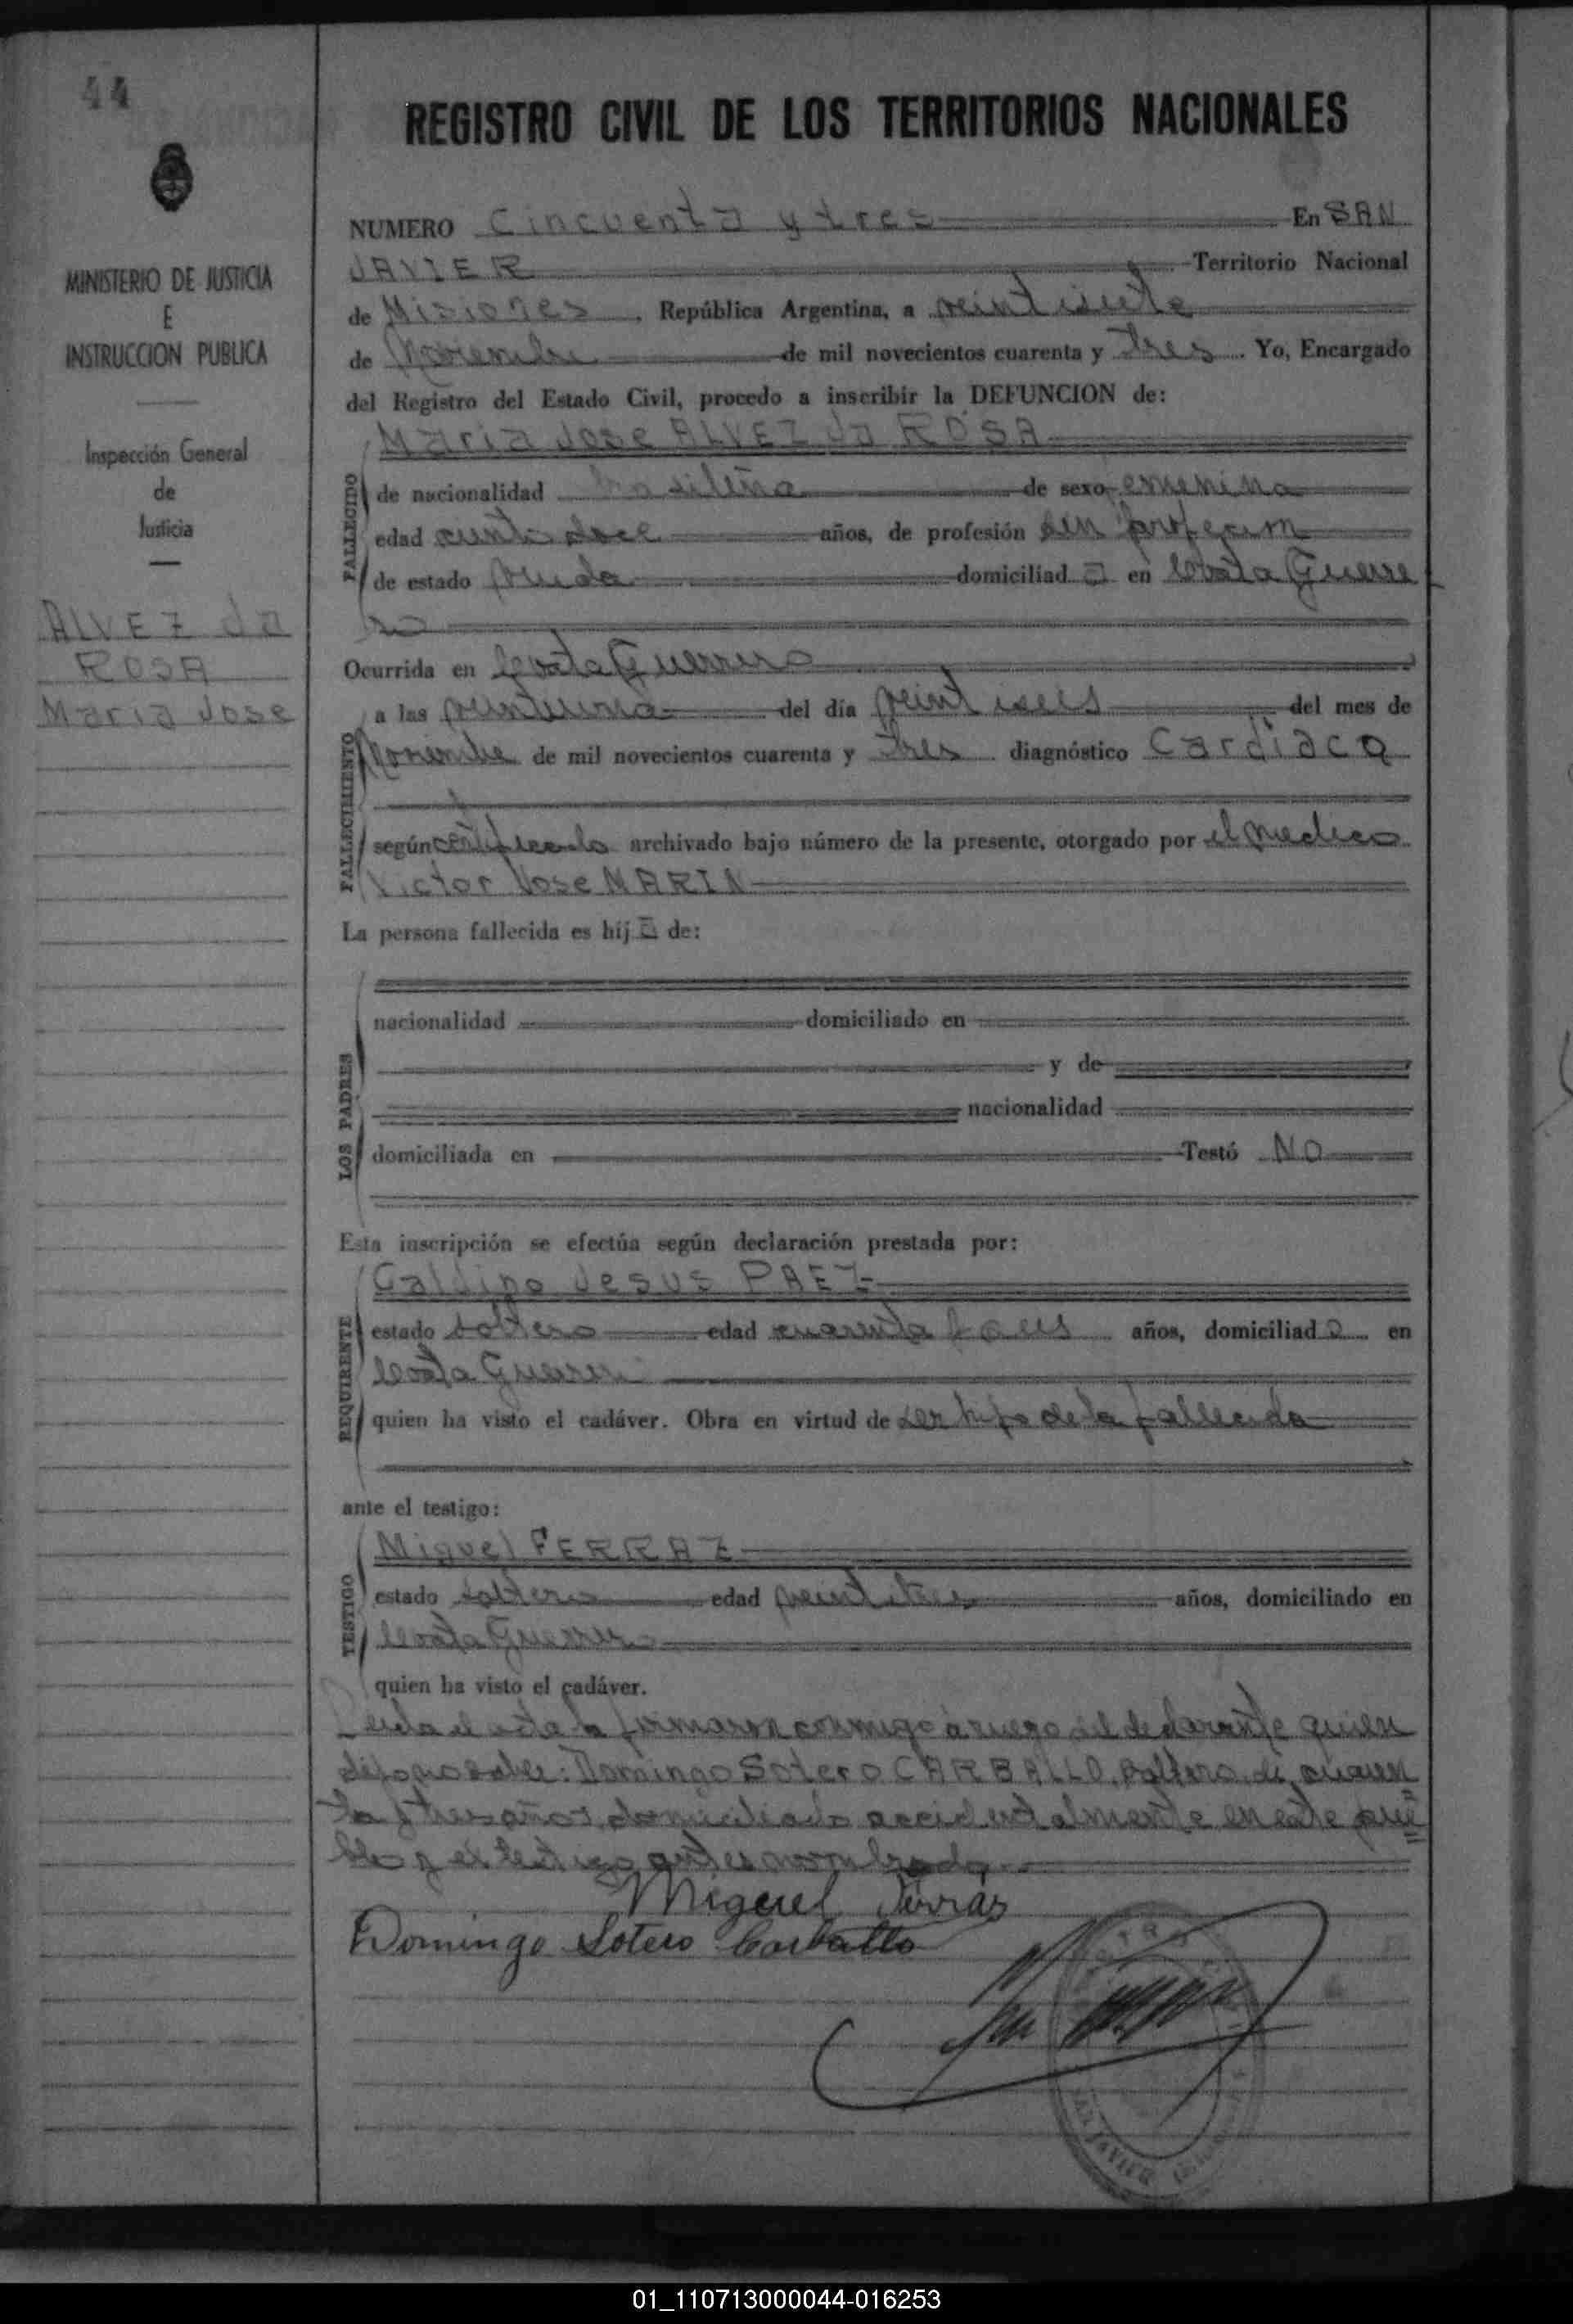 44
REGISTRO CIVIL DE LOS TERRITORIOS NACIONALES
MINISTERIO DE JUSTICIA
E
INSTRUCCION PUBLICA
Inspección General
de
Justicia
ALVEZ da
ROSA
Maria Jose
NUMERO Cincuenta y tres En SAN
JAVIER Territorio Nacional
de Misiones, República Argentina, a veintisiete
de Noviembre de mil novecientos cuarenta y tres. Yo, Encargado
del Registro del Estado Civil, procedo a inscribir la DEFUNCION de:
Maria Jose ALVEZ da ROSA
FALLECIDO
de nacionalidad brasileña de sexo femenino
edad años, de profesión sin profecion
de estado viuda domiciliada en Guerre
ro
Ocurrida en Guerrero
FALLECIMIENTO
a las veintiuna del día veintiseis del mes de
Noviembre de mil novecientos cuarenta y tres diagnóstico Cardiaca
según certificado archivado bajo número de la presente, otorgado por el medico
Victor Jose MARIN
La persona fallecida es hija de:
LOS PADRES
nacionalidad domiciliado en
y de
nacionalidad
domiciliada en Testó No
Esta inscripción se efectúa según declaración prestada por:
Galdino Jesus PAEZ
REQUIRENTE
estado soltero edad cuarenta y seis años, domiciliado en
Guerrero
quien ha visto el cadáver. Obra en virtud de ser hijo de la fallecida
ante el testigo:
Miguel FERRAZ
TESTIGO
estado soltero edad veintitres años, domiciliado en
Guerrero
quien ha visto el cadáver.
Leida el acta la firmaron conmigo a ruego del declarante quien
dijo no saber: Domingo Sotero CARBALLO, soltero, de cuaren
ta y tres años, domiciliado accidentalmente en este pue
blo y el testigo antes nombrado
Miguel Ferrás
Domingo Sotero Carballo
SAN JAVIER
01_110713000044-016253